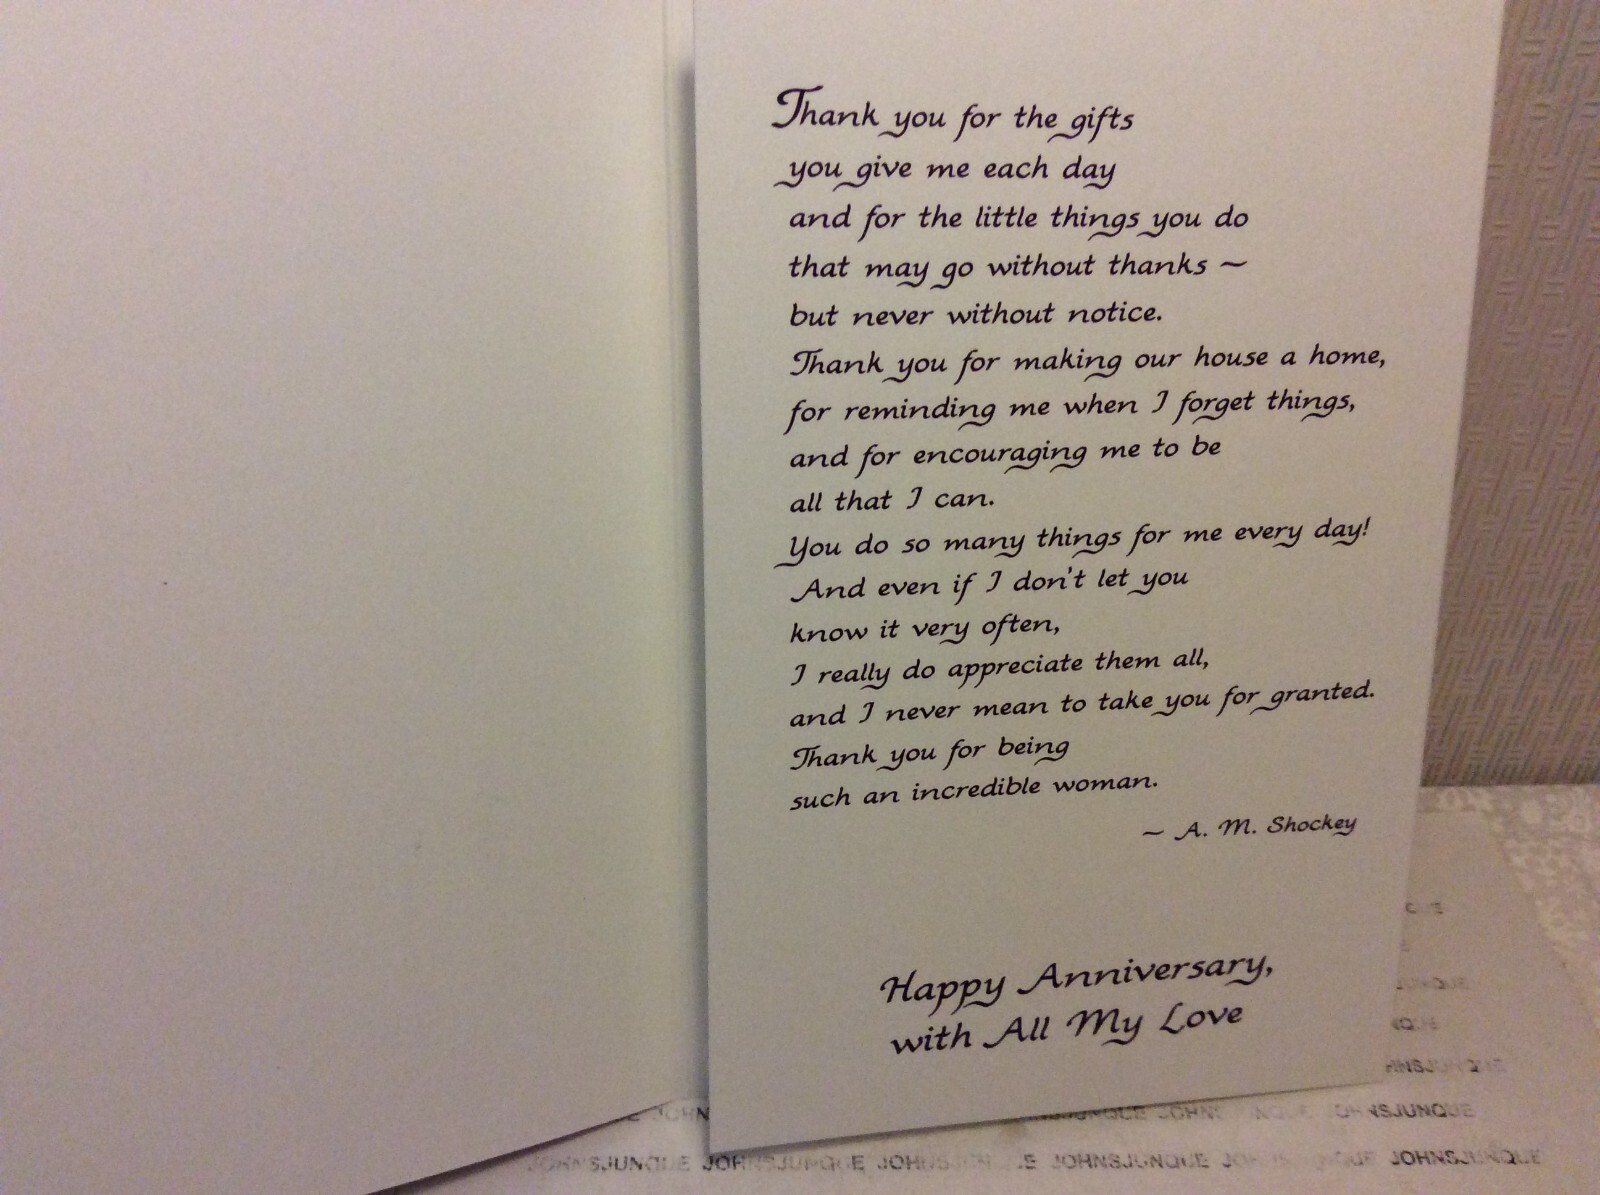 Thank you for the gifts
you give me each day
and for the little things you do
that may go without thanks ~
but never without notice.
Thank you for making our house a home,
for reminding me when I forget things,
and for encouraging me to be
all that I can.
You do so many things for me every day!
And even if I don't let you
know it very often,
I really do appreciate them all,
and I never mean to take you for granted.
Thank you for being
such an incredible woman.
~ A. M. Shockey
Happy Anniversary,
with All My Love
JOHNSJUNQUE
JOHNSJUNQUE JOHNSJUNQUE JOHNSJUNQUE JOHNSJUNQUE